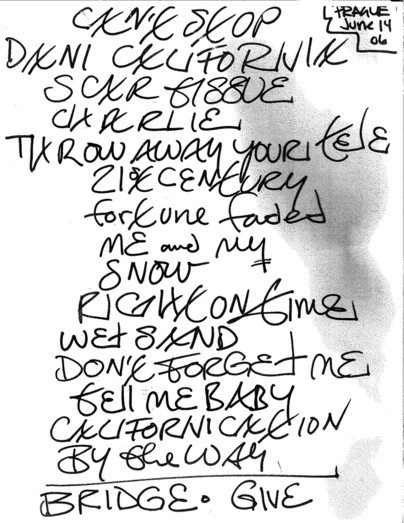 PRAGUE
JUNE 14
06
CAN'T STOP
DANI CALIFORNIA
SCAR TISSUE
CHARLIE
THROW AWAY YOUR tele
21st CENTURY
fortune faded
ME and MY
SNOW
RIGHT ON time
WET SAND
DON'T FORGET ME
tell ME BABY
CALIFORNICATION
BY the WAY
BRIDGE. GIVE